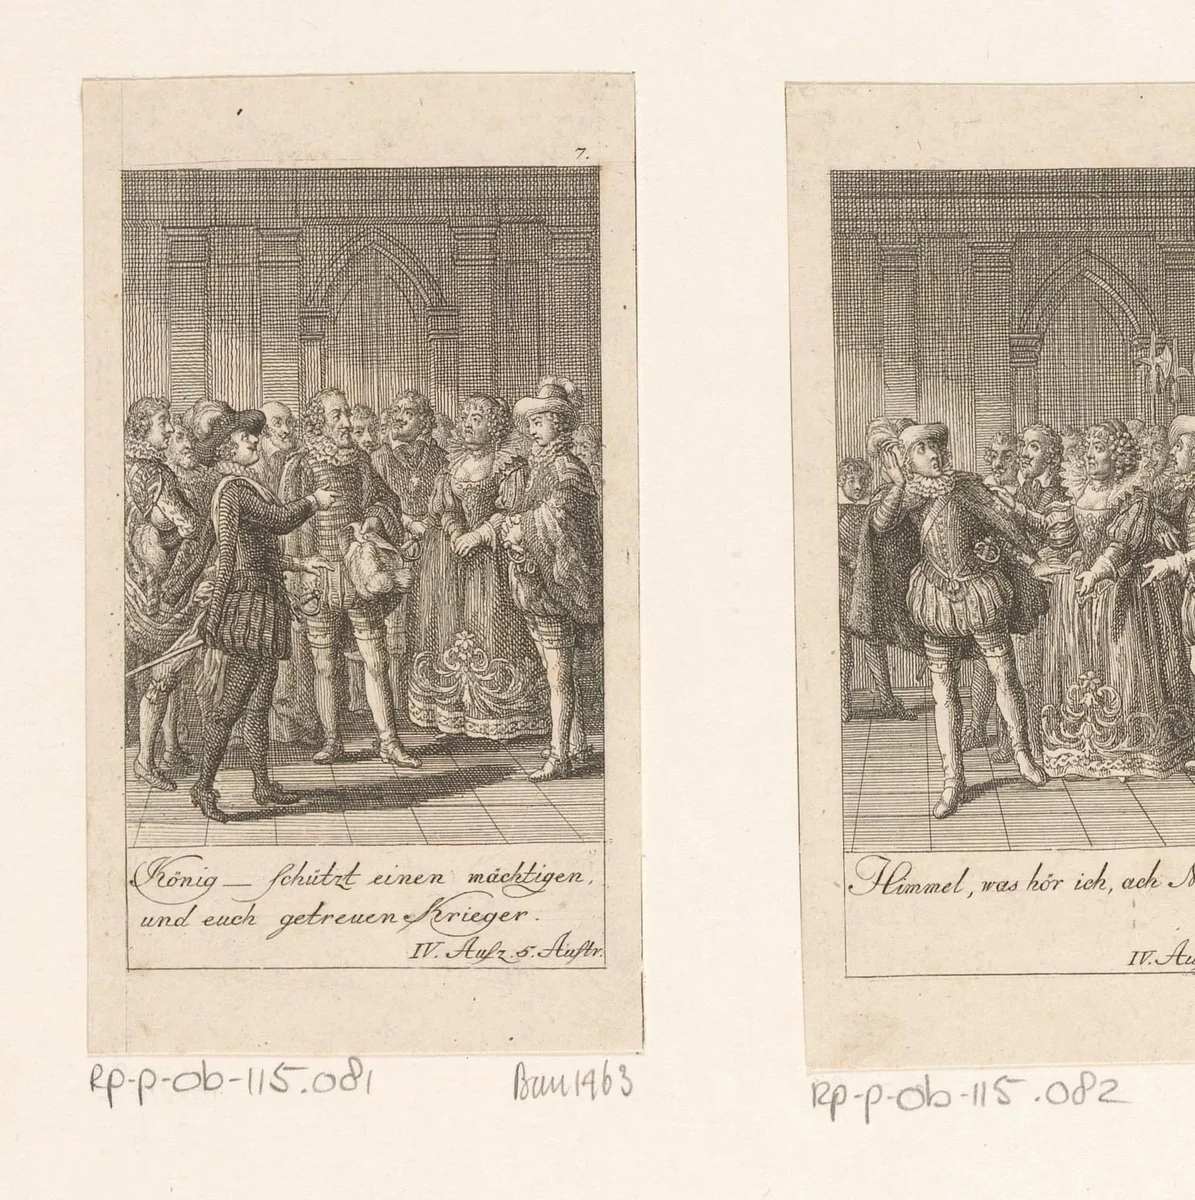 7.
König — schützt einen mächtigen,
und euch getreuen Krieger.
IV. Aufz. 5. Auftr.
RP-P-OB-115.081
Bau 1463
Himmel, was hör ich, ach
IV. Au
RP-P-OB-115.082